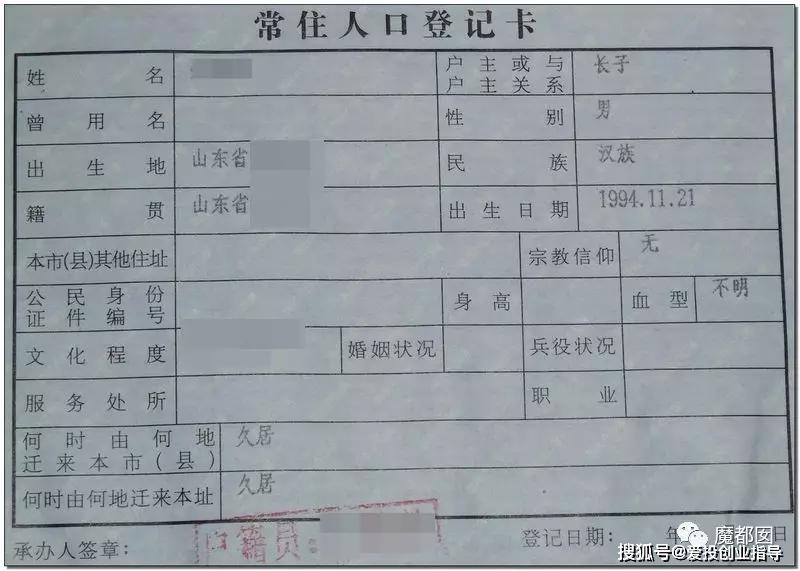 常住人口登记卡
姓名
户主或与户主关系 长子
曾用名
性别 男
出生地 山东省
民族 汉族
籍贯 山东省
出生日期 1994.11.21
本市(县)其他住址
宗教信仰 无
公民身份证件编号
身高
血型 不明
文化程度
婚姻状况
兵役状况
服务处所
职业
何时由何地迁来本市(县) 久居
何时由何地迁来本址 久居
承办人签章：
户籍员：
登记日期： 年 日
魔都囡
搜狐号@爱投创业指导